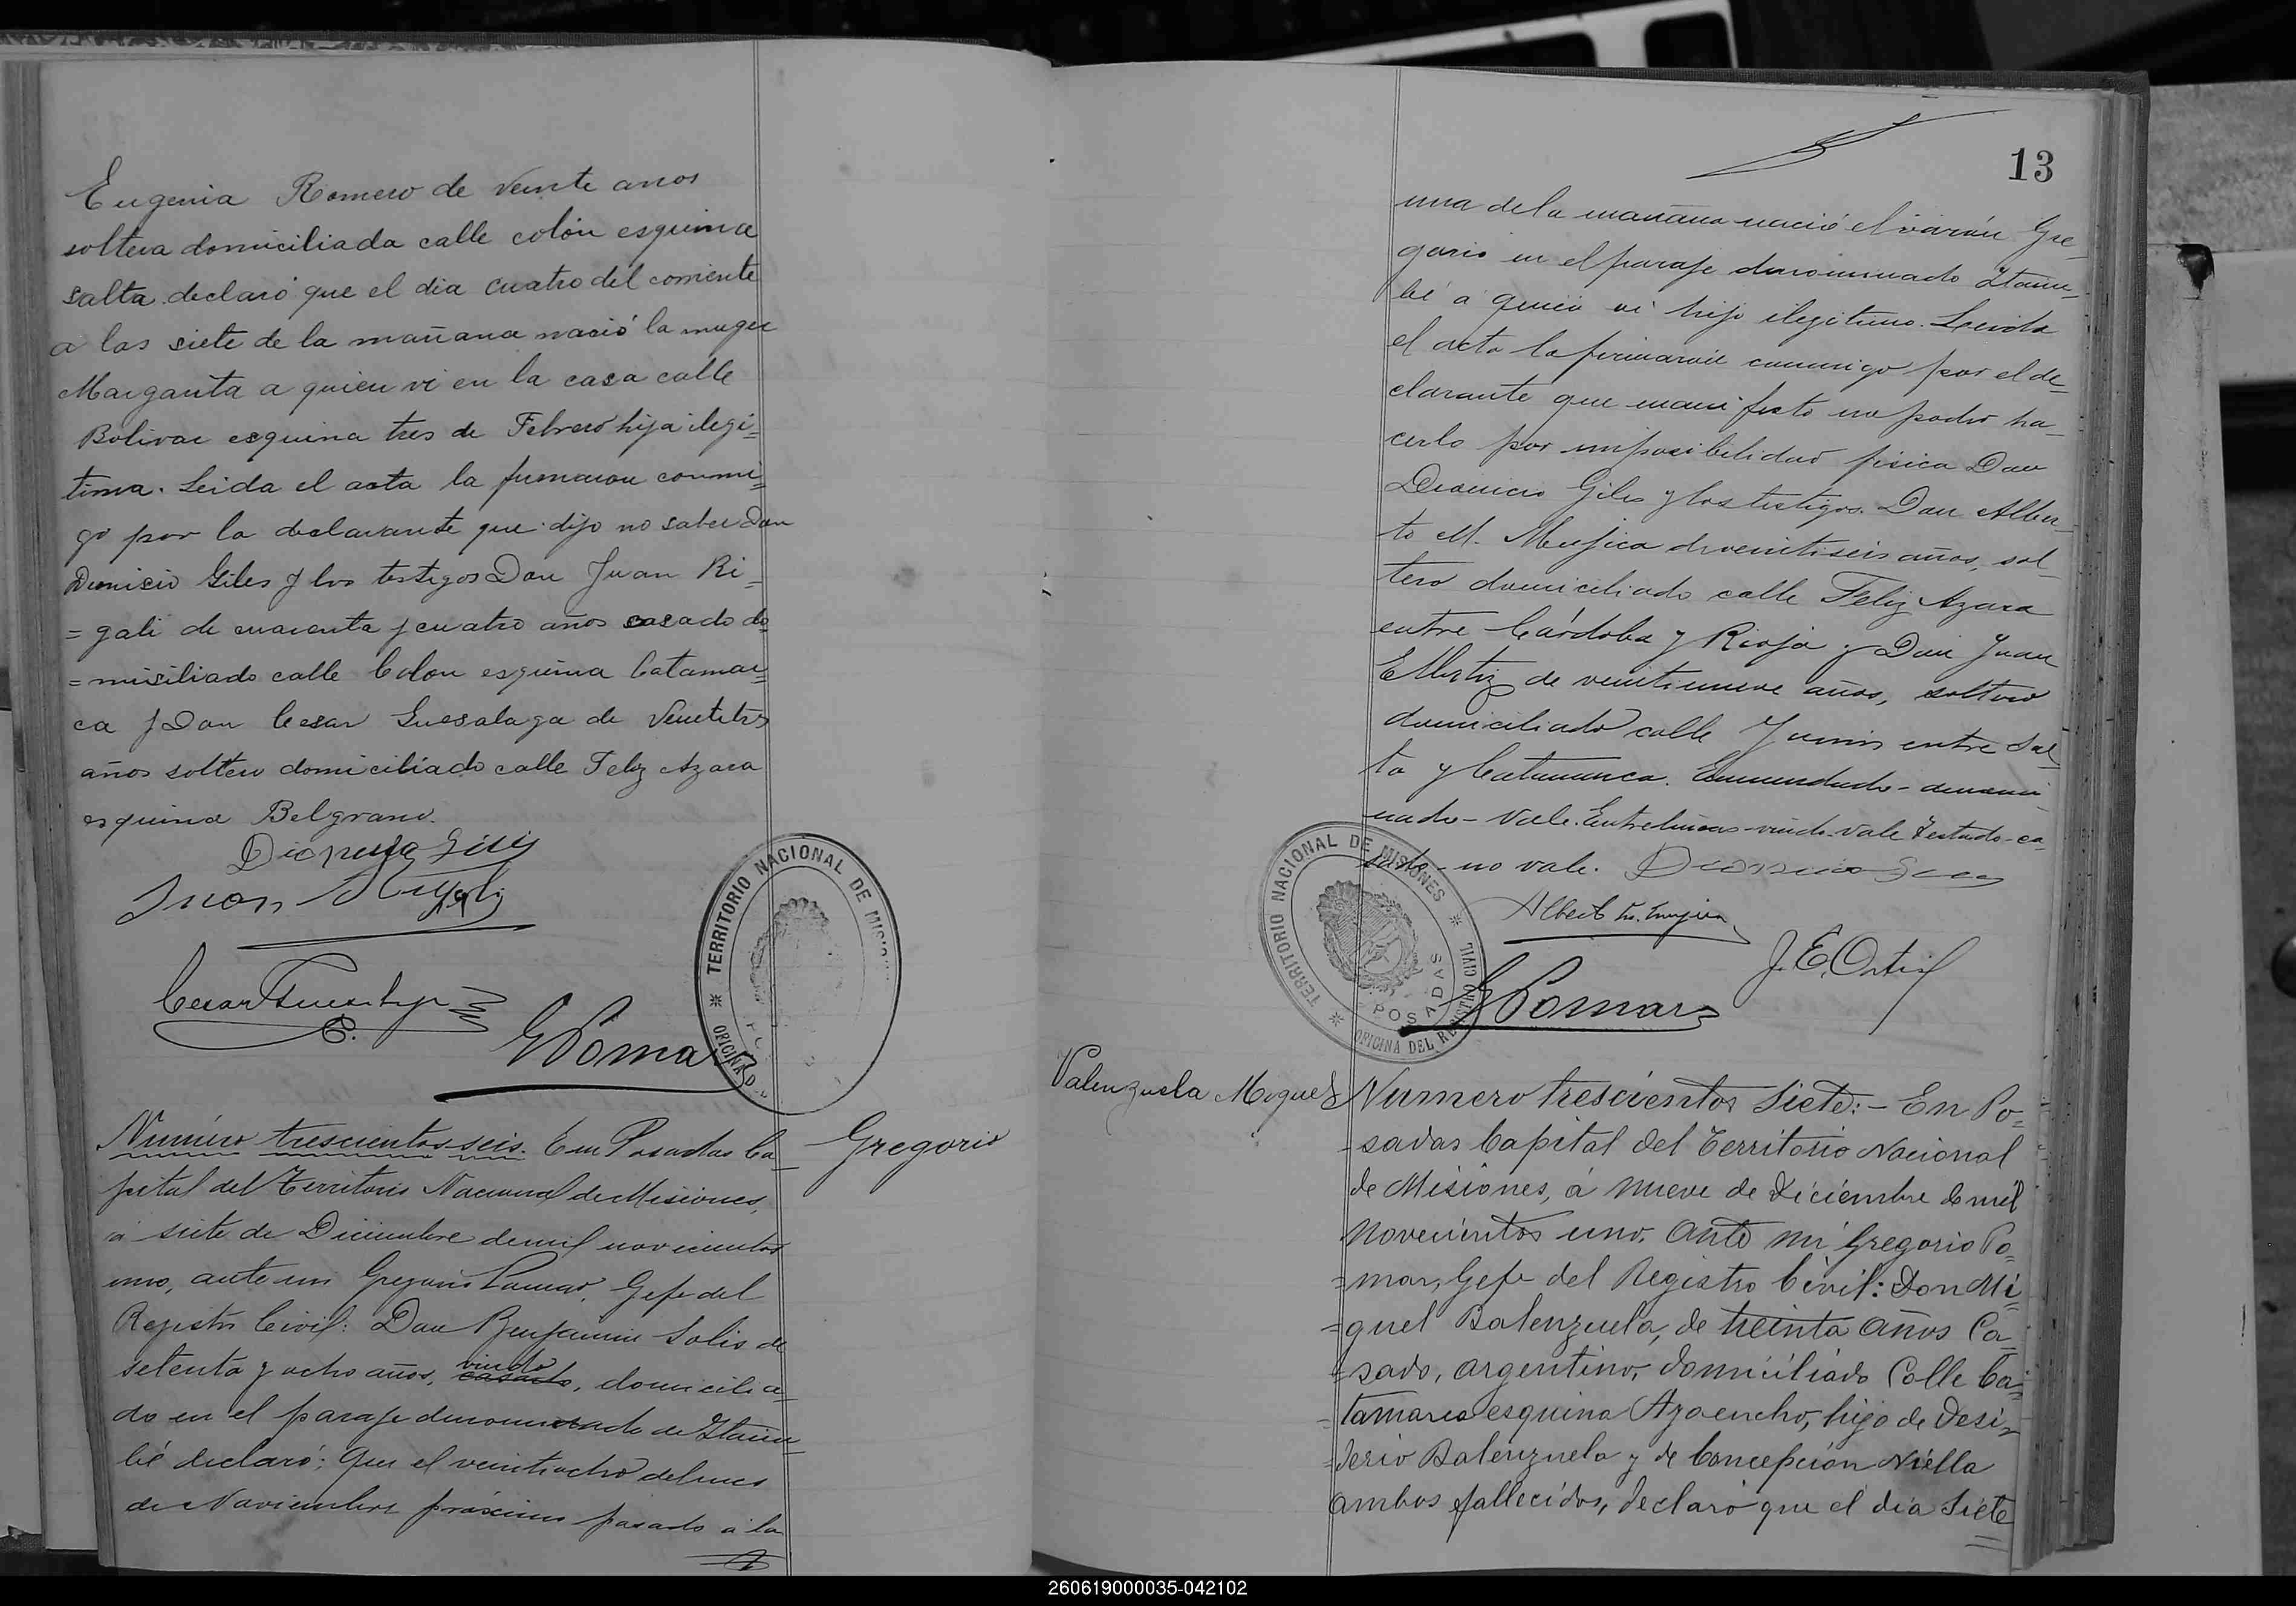 Eugenia Romero de veinte años
soltera domiciliada calle colón esquina
salta declaró que el dia cuatro del corriente
a las siete de la mañana nació la muger
Margarita a quien vi en la casa calle
Bolivar esquina tres de Febrero hija ilegi=
tima. Leida el acta la firmaron conmi=
go por la declarante que dijo no saber Don
Dionisio Giles y los testigos Don Juan Ri=
=gali de cuarenta y cuatro años casado do=
=misiliado calle Colon esquina Catamar=
ca y Don Cesar de veintitres
años soltero domiciliado calle Feliz Azara
esquina Belgrano.
Dionisio Giles
Juan Rigali
Cesar
G Pomar
TERRITORIO NACIONAL DE MISIONES
OFICINA D
Numéro trescientos seis. En Posadas Ca-
pital del Territorio Nacional de Misiones,
á siete de Diciembre de mil novecientos
uno, ante mi Gregorio Pomar, Gefe del
Registro Civil: Don Benjamin Solis de
setenta y ocho años, casado, domicilia-
viudo
do en el paraje denominado de Itaim-
bé declaró: Que el veintiocho del mes
de Noviembre próximo pasado á la
Gregorio
13
una de la mañana nació el varón Gre-
gorio en el paraje denominado Itaim-
bé á quien vi hijo ilegitimo. Leida
el acta la firmaron conmigo por el de-
clarante que manifestó no poder ha-
cerlo por imposibilidad fisica Don
Dionicio Giles y los testigos Don Alber-
to M. Mujica de veintiseis años, sol-
tero domiciliado calle Feliz Azara
entre Córdoba y Rioja y Don Juan
E Ortiz de veintinueve años, soltero
domiciliado calle Junin entre Sal-
ta y Catamarca. Enmendado-denomi-
nado-Vale. Entrelineas-viudo-vale Testado-ca-
sado-no vale. Dionicio Giles
Albert M. Mujica
J. E. Ortiz
G Pomar
TERRITORIO NACIONAL DE MISIONES
POSADAS
OFICINA DEL REGISTRO CIVIL
Valenzuela Miguel
Numero trescientos Siete:- En Po=
-sadas Capital del Territorio Nacional
de Misiones, á nueve de Diciembre de mil
novecientos uno. Ante mi Gregorio Po=
=mar, Gefe del Registro Civil: Don Mi=
=guel Balenzuela, de treinta años Ca=
=sado, argentino, domiciliado Calle Ca=
=tamarca esquina Ayacucho, hijo de Desi=
=derio Balenzuela y de Concepción Niella
ambos fallecidos, declaró que el dia Siete
260619000035-042102